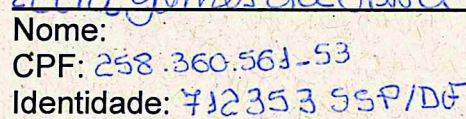 Nome:
CPF: 258.360.561-53
Identidade: 712353 SSP/DF